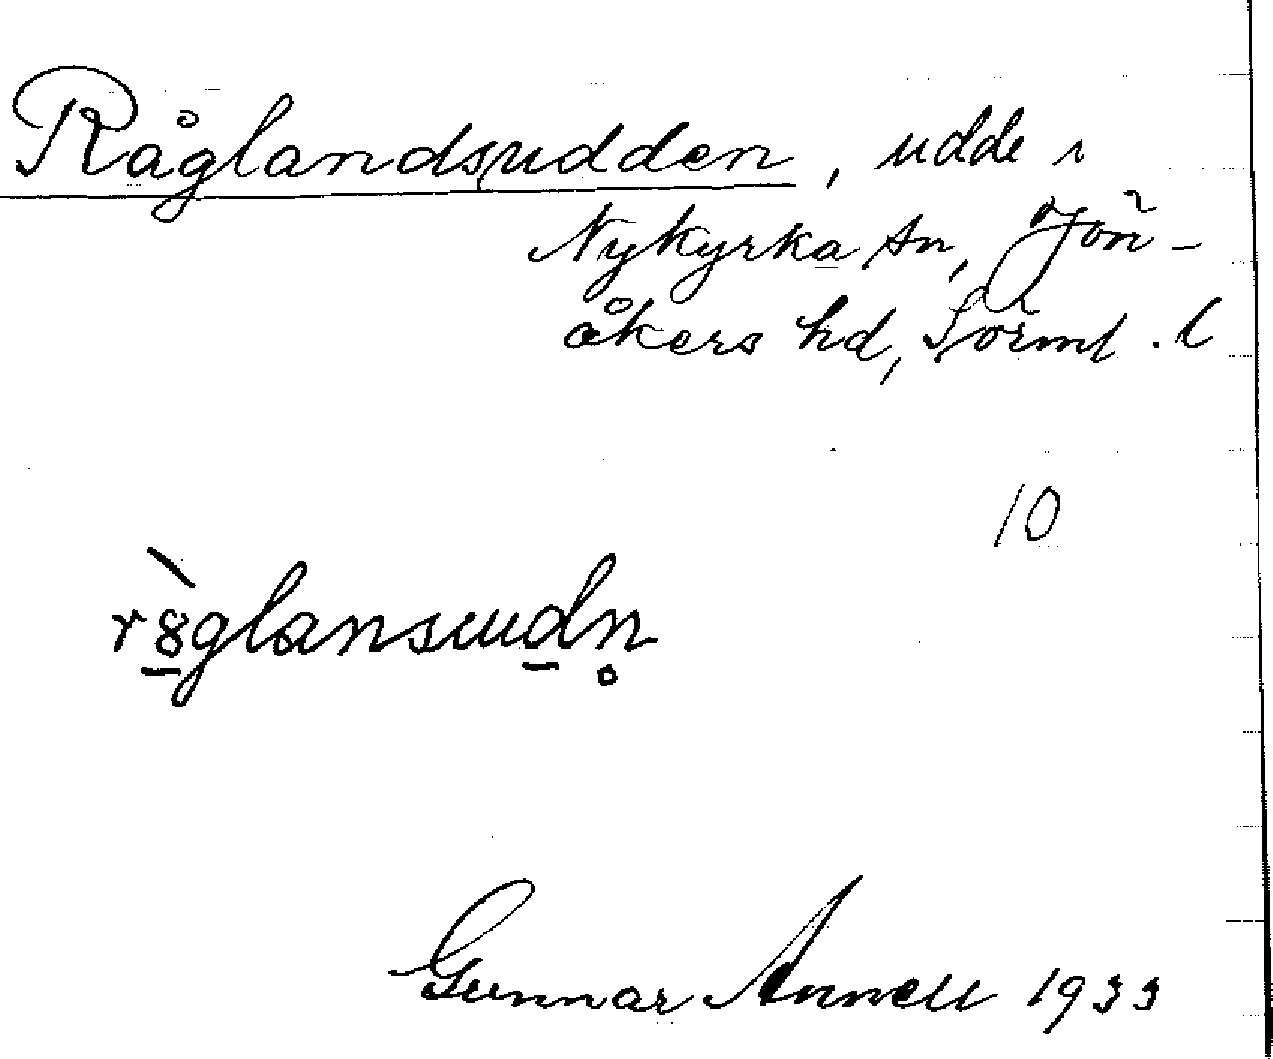 Råglandsudden, udde i
Nykyrka sn, Jön-
åkers hd, Sörml. l
10
r8̱̀glansuud̲n̥
Gunnar Annell 1933